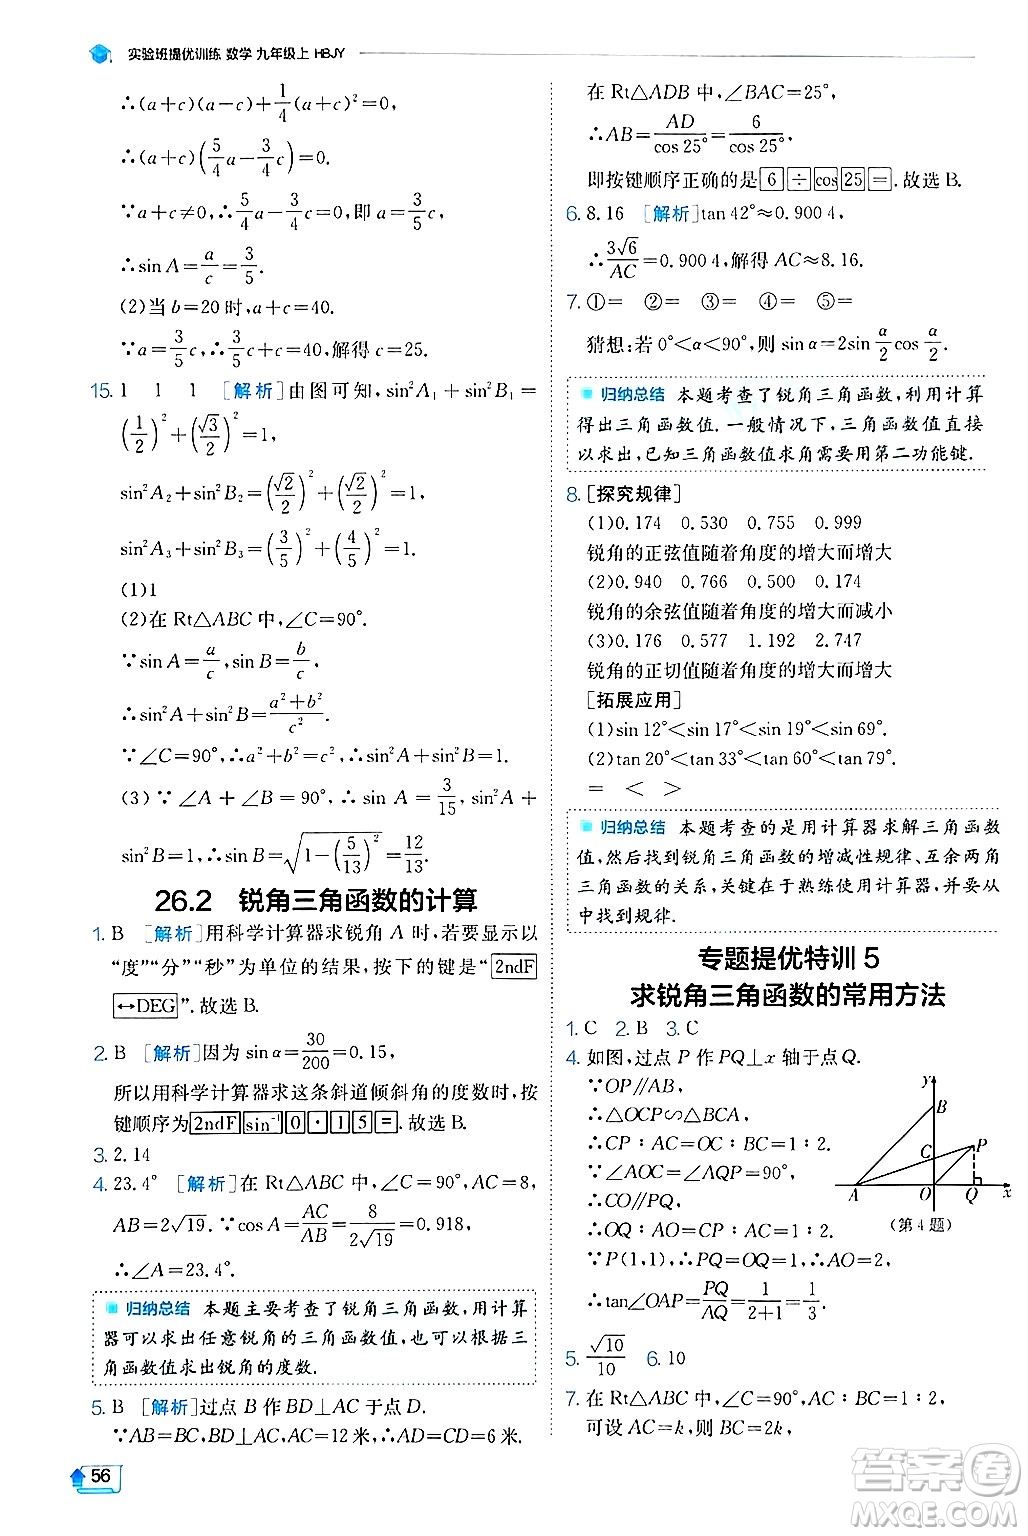 实验班提优训练 数学 九年级上 HBJY
∴(a+c)(a−c)+1/4(a+c)²=0,
∴(a+c)(5/4a−3/4c)=0.
∵a+c≠0,∴5/4a−3/4c=0,即a=3/5c,
∴sin A=a/c=3/5.
(2)当b=20时,a+c=40.
∵a=3/5c,∴3/5c+c=40,解得c=25.
15. 1 1 1 [解析]由图可知,sin²A₁+sin²B₁=
(1/2)²+(√3/2)²=1,
sin²A₂+sin²B₂=(√2/2)²+(√2/2)²=1,
sin²A₃+sin²B₃=(3/5)²+(4/5)²=1.
(1)1
(2)在Rt△ABC中,∠C=90°.
∵sin A=a/c,sin B=b/c,
∴sin²A+sin²B=(a²+b²)/c².
∵∠C=90°,∴a²+b²=c²,∴sin²A+sin²B=1.
(3)∵∠A+∠B=90°,∴sin A=3/15,sin²A+
sin²B=1,∴sin B=√(1−(5/13)²)=12/13.
26.2 锐角三角函数的计算
1. B [解析]用科学计算器求锐角A时,若要显示以
“度”“分”“秒”为单位的结果,按下的键是“2ndF
↔DEG”.故选B.
2. B [解析]因为sin α=30/200=0.15,
所以用科学计算器求这条斜道倾斜角的度数时,按
键顺序为2ndF sin⁻¹ 0 · 1 5 =.故选B.
3. 2.14
4. 23.4° [解析]在Rt△ABC中,∠C=90°,AC=8,
AB=2√19.∵cos A=AC/AB=8/(2√19)≈0.918,
∴∠A=23.4°.
归纳总结 本题主要考查了锐角三角函数,用计算
器可以求出任意锐角的三角函数值,也可以根据三
角函数值求出锐角的度数.
5. B [解析]过点B作BD⊥AC于点D.
∵AB=BC,BD⊥AC,AC=12米,∴AD=CD=6米.
56
在Rt△ADB中,∠BAC=25°,
∴AB=AD/cos 25°=6/cos 25°,
即按键顺序正确的是6 ÷ cos 25 =.故选B.
6. 8.16 [解析]tan 42°≈0.900 4,
∴3√6/AC=0.900 4,解得AC≈8.16.
7. ①= ②= ③= ④= ⑤=
猜想:若0°<α<90°,则sin α=2sin α/2 cos α/2.
归纳总结 本题考查了锐角三角函数,利用计算
得出三角函数值.一般情况下,三角函数值直接可
以求出,已知三角函数值求角需要用第二功能键.
8. [探究规律]
(1)0.174 0.530 0.755 0.999
锐角的正弦值随着角度的增大而增大
(2)0.940 0.766 0.500 0.174
锐角的余弦值随着角度的增大而减小
(3)0.176 0.577 1.192 2.747
锐角的正切值随着角度的增大而增大
[拓展应用]
(1)sin 12°<sin 17°<sin 19°<sin 69°.
(2)tan 20°<tan 21°<tan 50°<tan 80°.
= < >
归纳总结 本题考查的是用计算器求解三角函数
值,然后找到锐角三角函数的增减性规律、互余两角
三角函数的关系,关键在于熟练使用计算器,并要从
中找到规律.
专题提优特训 5
求锐角三角函数的常用方法
1. C 2. B 3. C
4. 如图,过点P作PQ⊥x轴于点Q.
∵OP∥AB,
∴△OCP∽△BCA,
∴CP∶AC=OC∶BC=1∶2.
∵∠AOC=∠AQP=90°,
∴CO∥PQ,
∴OQ∶AO=CP∶AC=1∶2.
∵P(1,1),∴PQ=OQ=1,∴AO=2.
∴tan∠OAP=PQ/AQ=1/(2+1)=1/3.
y B C P A O Q x
(第4题)
5. √10/10 6. 10
7. 在Rt△ABC中,∠C=90°,AC∶BC=1∶2,
可设AC=k,则BC=2k,
答案圈
MXQE.COM